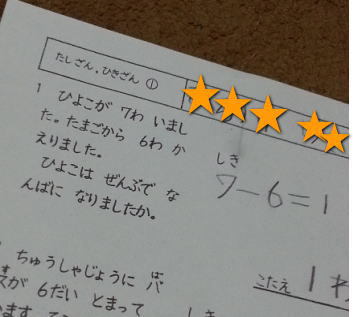 たしざん、ひきざん ①
1 ひよこが 7わ いまし
た。たまごから 6わ か
えりました。
ひよこは ぜんぶで な
んばに なりましたか。
しき
7-6=1
こたえ 1わ
ちゅうしゃじょうに バ
ば
スが 6だい とまって